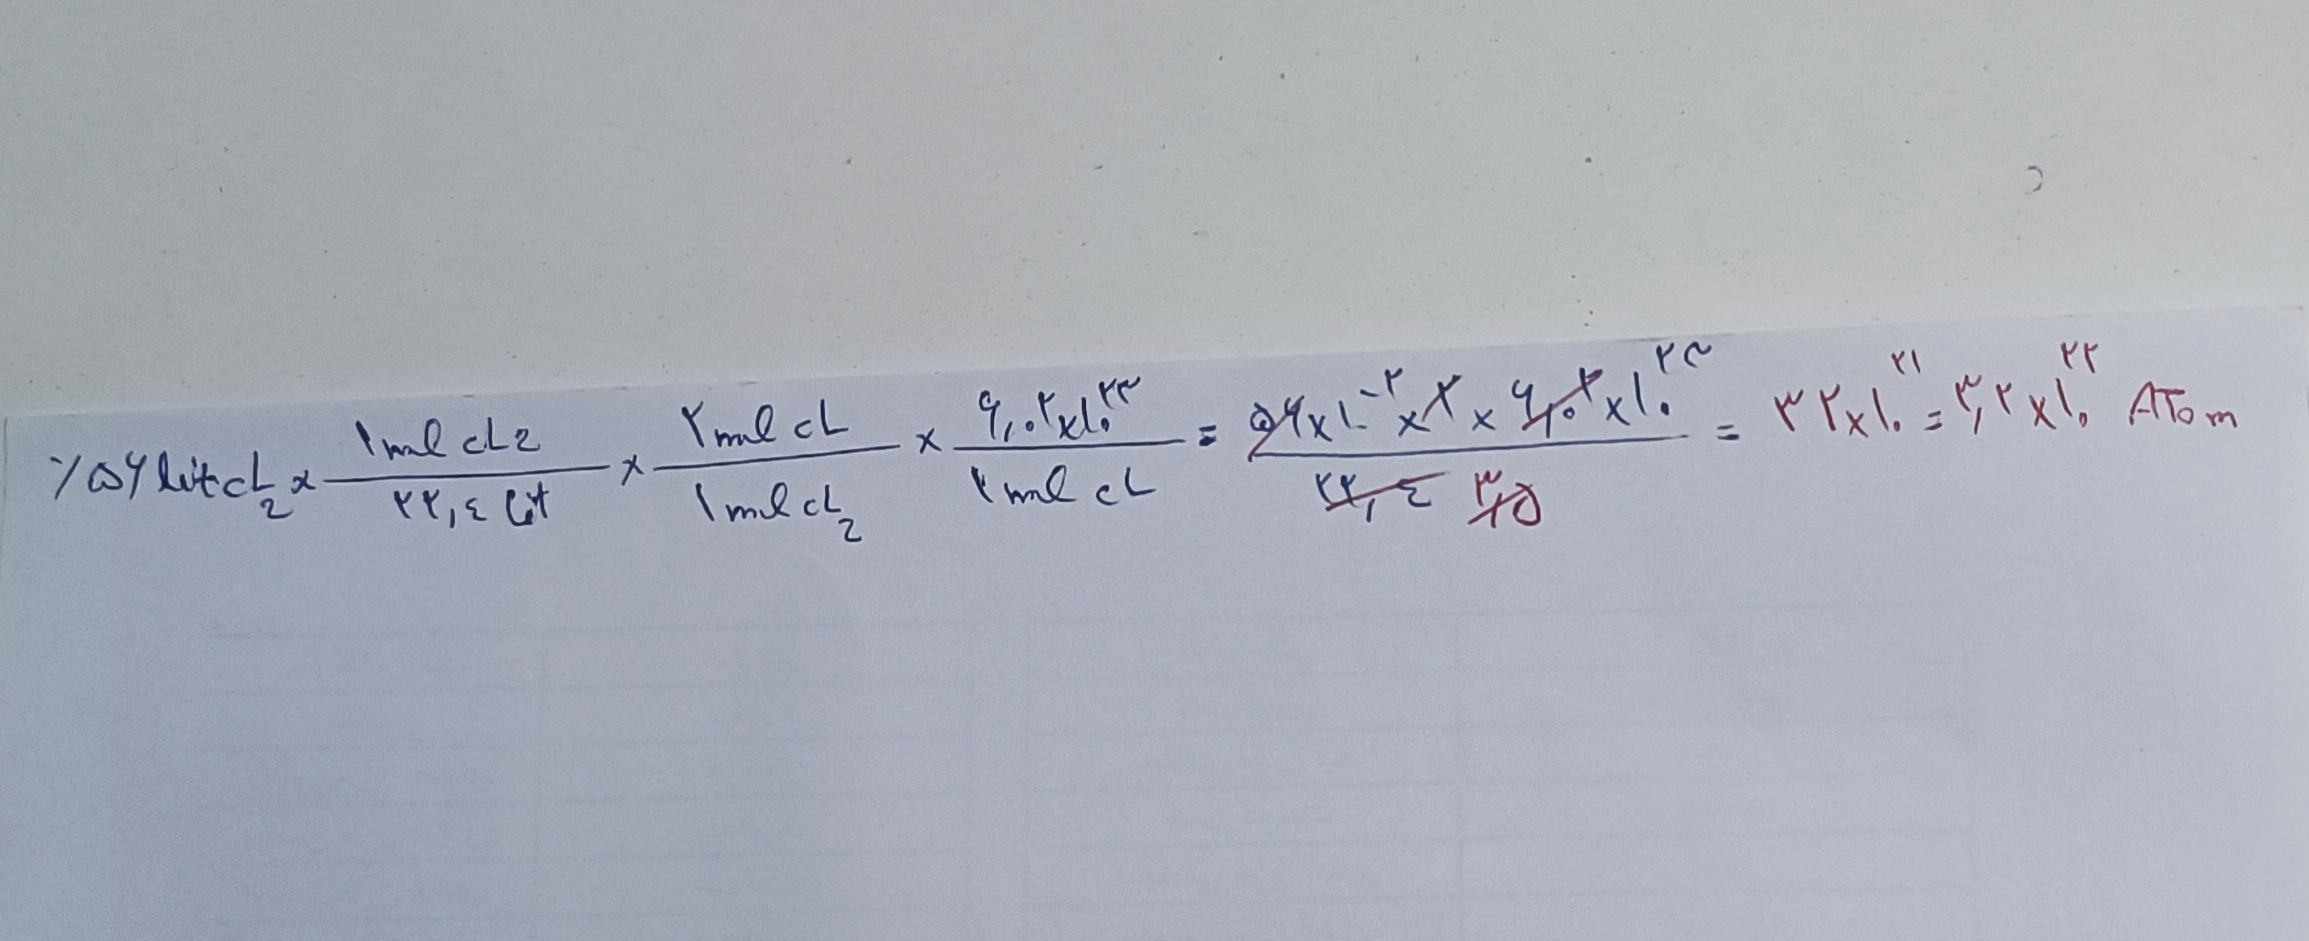 ٪۵۶ litcL₂ × ۱mol cL2 / ۲۲,٤ Lit × ۲mol cL / ۱mol cL₂ × ۶,۰۲×۱۰^۲۳ / ۱mol cL = ۵۶×۱۰^-۲ × ۲ × ۶,۰۲×۱۰^۲۳ / ۲۲,٤ = ۳۲×۱۰^۲۱ = ۳,۲×۱۰^۲۲ ATom